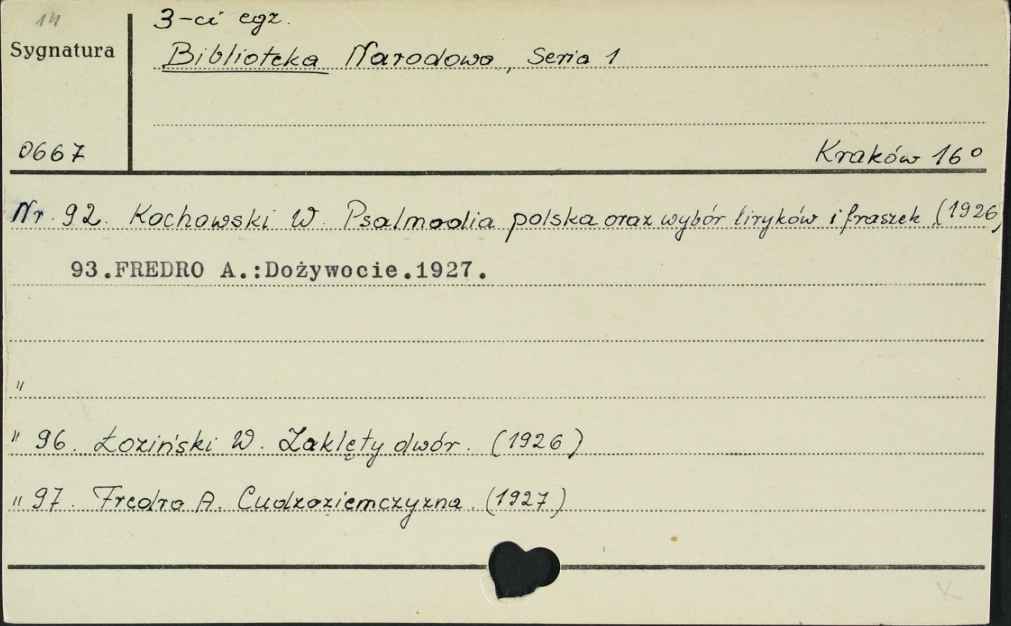 14
3-ci egz.
Sygnatura
Biblioteka Narodowa, Seria 1
0667
Kraków 16°
Nr. 92. Kochowski W. Psalmodia polska oraz wybór liryków i fraszek (1926)
93.FREDRO A.:Dożywocie.1927.
"
" 96. Łoziński W. Zaklęty dwór. (1926)
" 97. Fredro A. Cudzoziemczyzna. (1927)
X